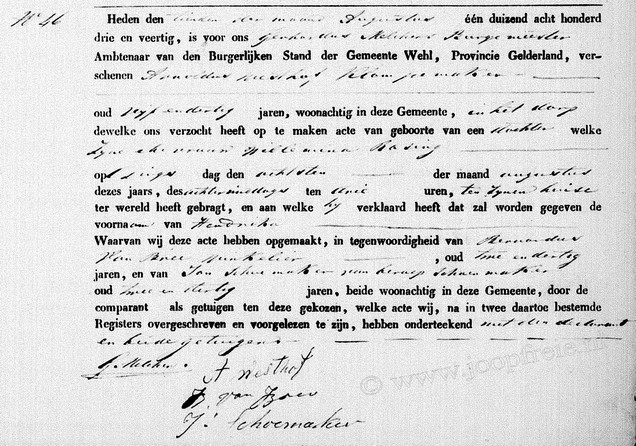 No 46
Heden den tienden der maand Augustus één duizend acht honderd
drie en veertig, is voor ons Gerhardus Melchers Burgemeester
Ambtenaar van den Burgerlijken Stand der Gemeente Wehl, Provincie Gelderland, ver-
schenen Arnoldus Niesthof Klompemaker
oud vyf en dertig jaren, woonachtig in deze Gemeente, in het dorp
dewelke ons verzocht heeft op te maken acte van geboorte van een dochter welke
zyne ehevrouw Willemina Rasing
op dings dag den achtsten der maand augustus
dezes jaars, des achtermiddags ten drie uren, ten zynen huise
ter wereld heeft gebragt, en aan welke hy verklaard heeft dat zal worden gegeven de
voornaam van Hendrika
Waarvan wij deze acte hebben opgemaakt, in tegenwoordigheid van Bernardus
Van Bree Winkelier, oud twee en dertig
jaren, en van Jan Schoemaker van beroep Schoenmaker
oud twee en dertig jaren, beide woonachtig in deze Gemeente, door de
comparant als getuigen ten deze gekozen, welke acte wij, na in twee daartoe bestemde
Registers overgeschreven en voorgelezen te zijn, hebben onderteekend met den declarant
en beide getuigen
G. Melchers.
A Niesthof
B. van Bree
J: Schoemaker
© www.joopfrei